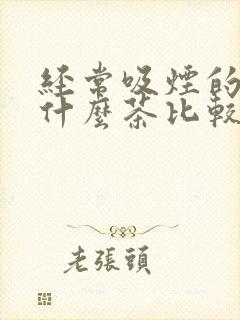 經常吸煙的
什麼茶比較
老張頭